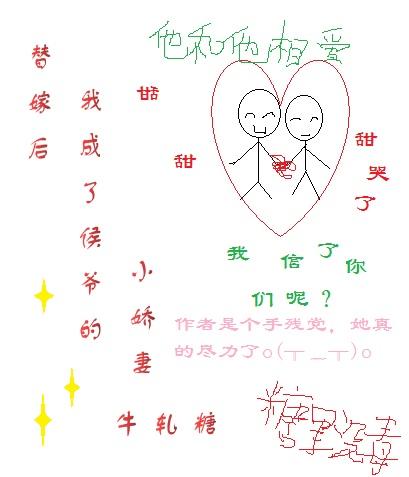 他和他相爱
替嫁后
我成了侯爷的
小娇妻
甜
甜
甜哭了
我信了你
们呢？
作者是个手残党，她真
的尽力了o(╥﹏╥)o
牛轧糖
糖里没毒